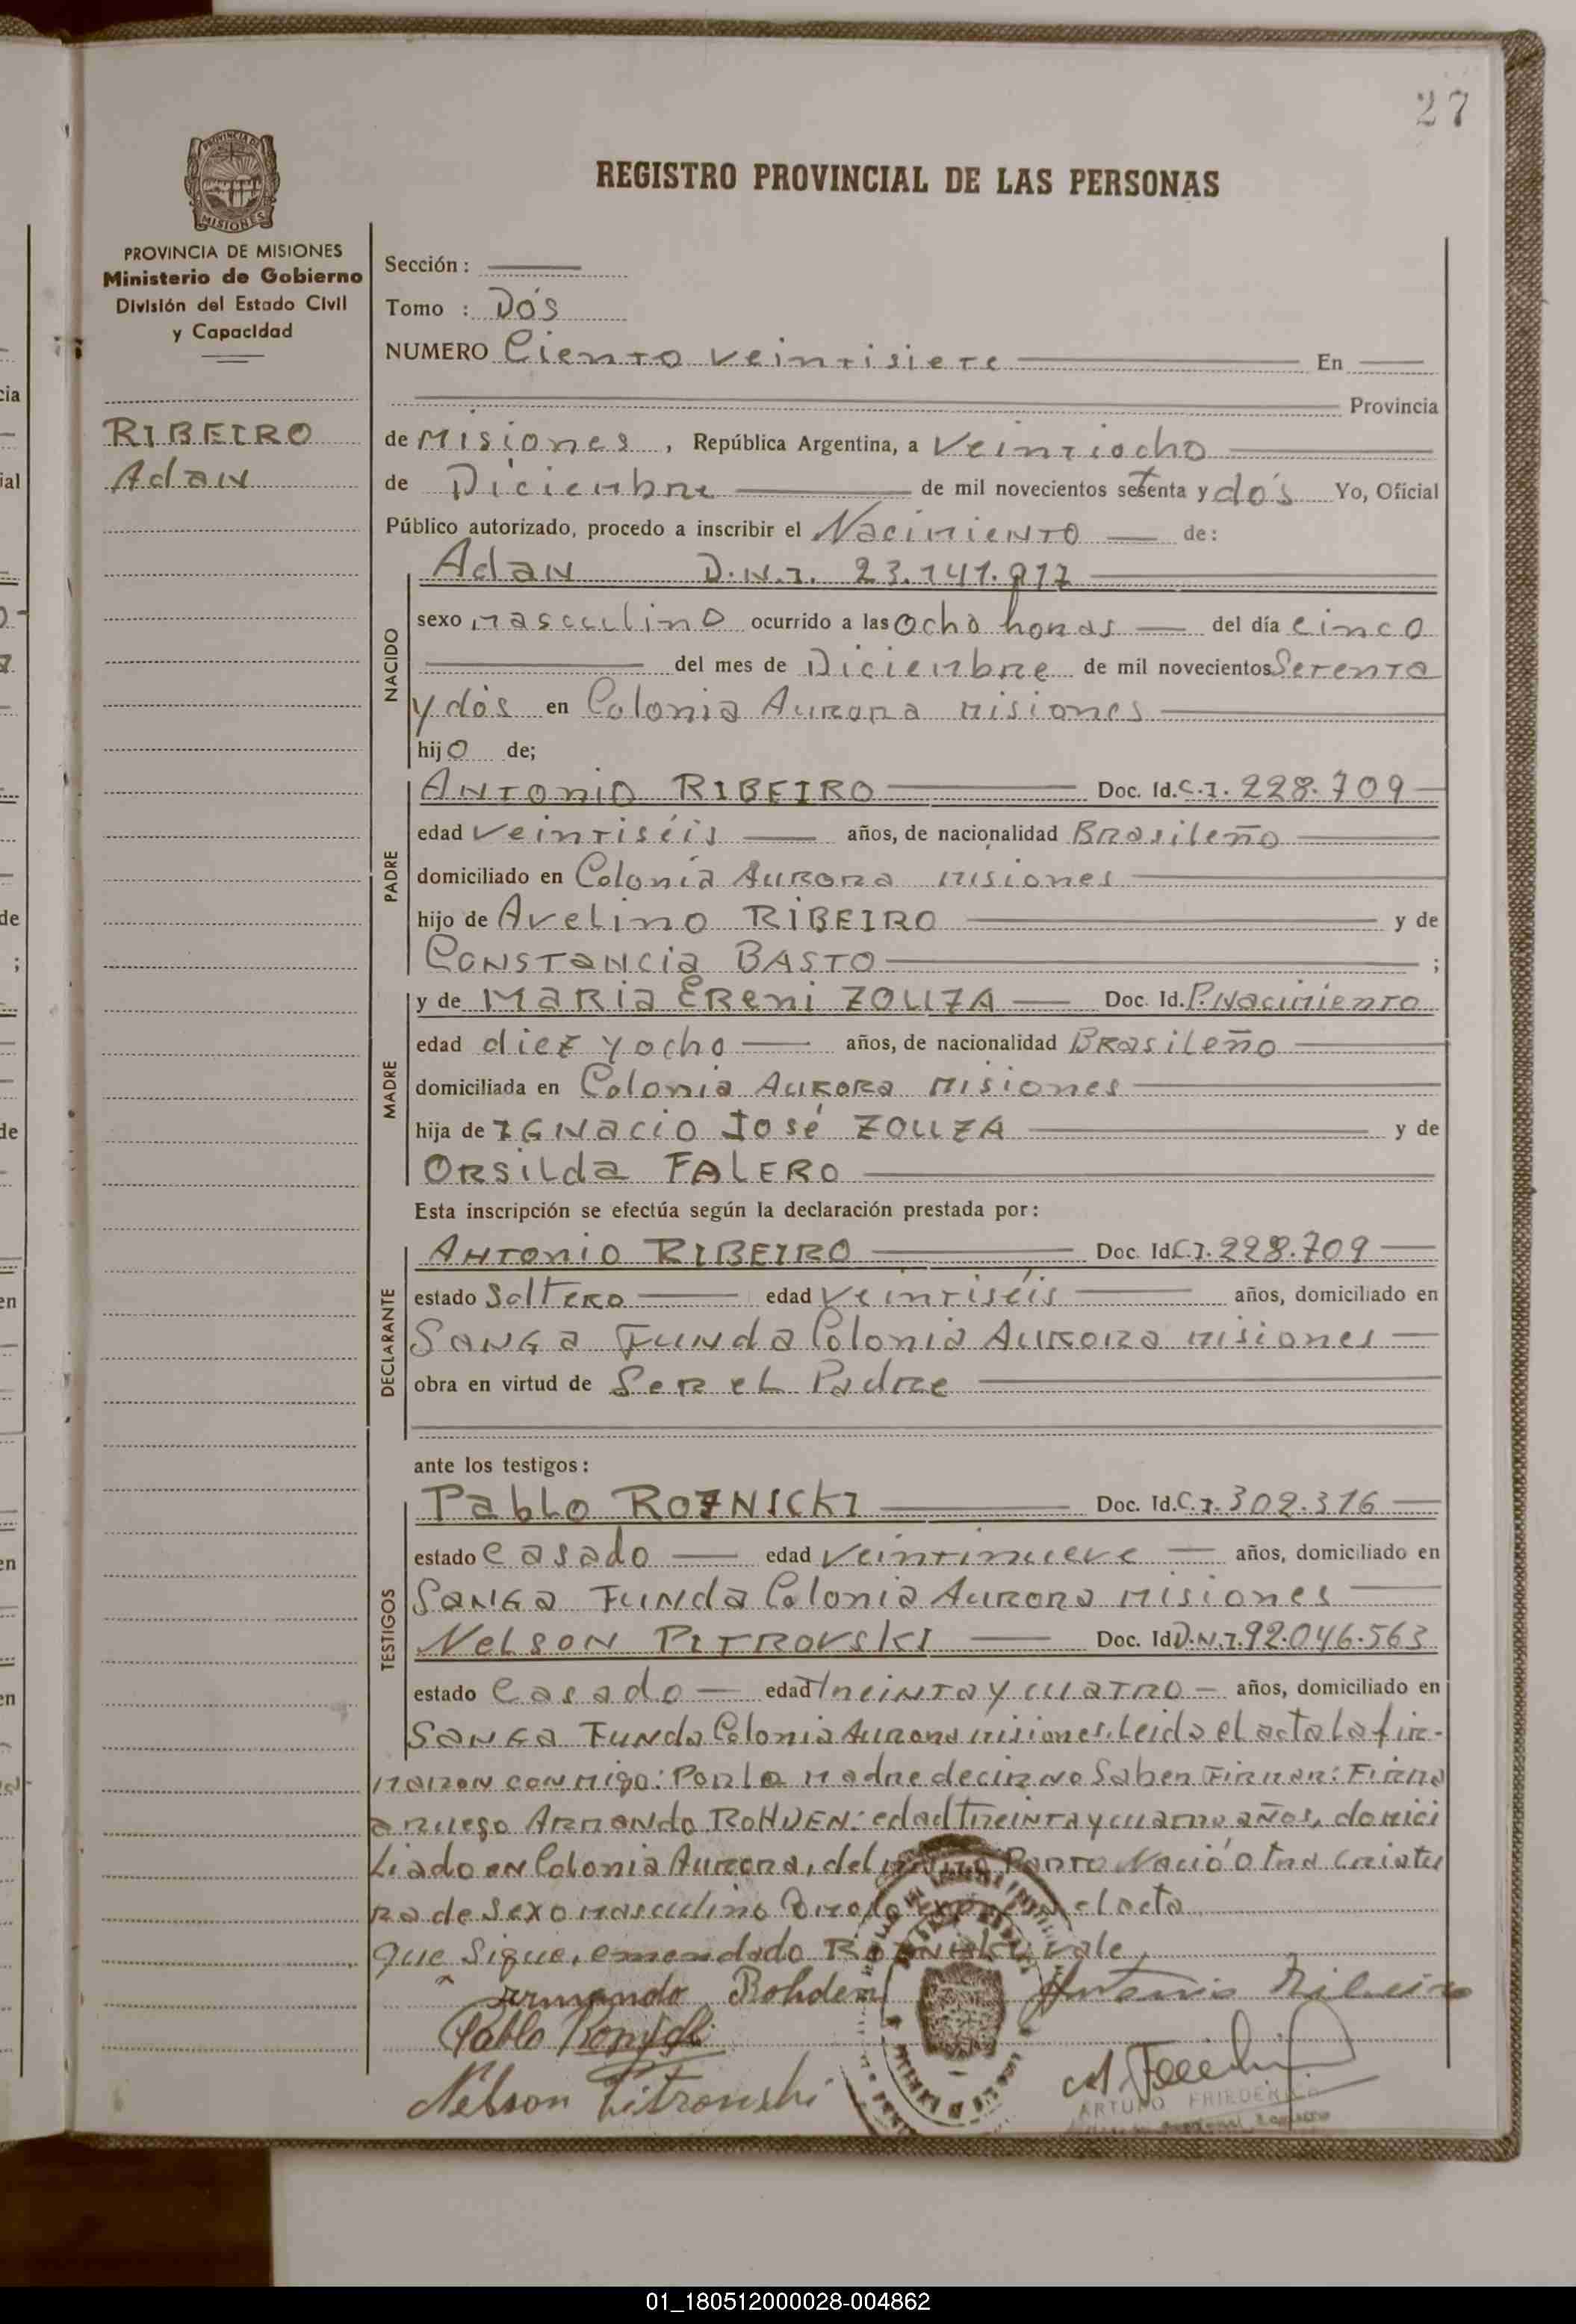 27
REGISTRO PROVINCIAL DE LAS PERSONAS
PROVINCIA DE MISIONES
Ministerio de Gobierno
División del Estado Civil
y Capacidad
RIBEIRO
Adan
Sección :
Tomo : Dós
NUMERO Ciento veintisiete En
Provincia
de Misiones, República Argentina, a Veintiocho
de Diciembre de mil novecientos setenta y dós Yo, Oficial
Público autorizado, procedo a inscribir el Nacimiento de:
NACIDO
Adan D.N.I. 23.141.917
sexo masculino ocurrido a las Ocho horas del día cinco
del mes de Diciembre de mil novecientos Setenta
y dós en Colonia Aurora Misiones
hijo de;
PADRE
Antonio RIBEIRO Doc. Id. C.I. 228.709
edad Veintiséis años, de nacionalidad Brasileño
domiciliado en Colonia Aurora Misiones
hijo de Avelino RIBEIRO y de
Constancia BASTO ;
MADRE
y de Maria Ereni ZOUZA Doc. Id. P. Nacimiento
edad diez y ocho años, de nacionalidad Brasileño
domiciliada en Colonia Aurora Misiones
hija de Ignacio José ZOUZA y de
Orsilda FALERO
Esta inscripción se efectúa según la declaración prestada por:
DECLARANTE
Antonio RIBEIRO Doc. Id. C.I. 228.709
estado Soltero edad Veintiséis años, domiciliado en
Sanga Funda Colonia Aurora Misiones
obra en virtud de Ser el Padre
ante los testigos:
TESTIGOS
Pablo ROZNICKI Doc. Id. C.I. 302.316
estado Casado edad Veintinueve años, domiciliado en
Sanga Funda Colonia Aurora Misiones
Nelson PITROVSKI Doc. Id D.N.I. 92.046.563
estado Casado edad Treinta y cuatro años, domiciliado en
Sanga Funda Colonia Aurora Misiones. Leida el acta la fir-
maron conmigo: Por la madre decir no Saber Firmar: Firma
a ruego Armando ROHDEN: edad treinta y cuatro años, domici
liado en Colonia Aurora, del mismo Parto Nació otra criatu
ra de Sexo masculino el acta
que Sigue, emendado vale
Armando Rohden Antonio Ribeiro
Pablo
Nelson Pitrovski
ARTURO
01_180512000028-004862